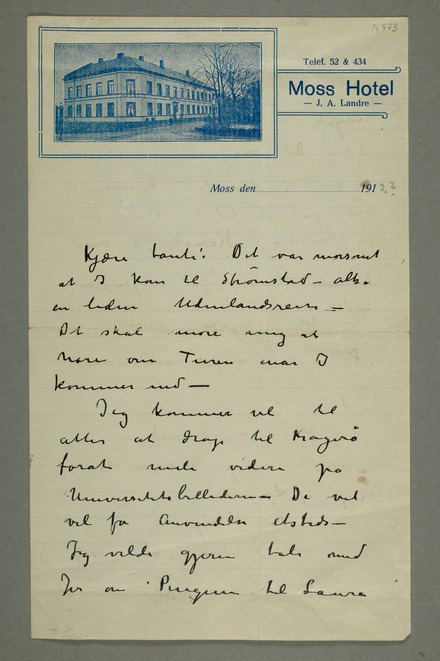 N 973
Telef. 52 & 434
Moss Hotel
— J. A. Landre —
Moss den 191 2?
Kjære tante! Det var morsomt
at I kom til Strømstad – altså
en liden Udenlandsreise –
Det skal more mig at
høre om Turen naar I
kommer ned –
Jeg kommer vel til
atter at drage til Kragerø
forat male videre på
Universitetsbillederne – De vil
vel få Anvendelse etsteds –
Jeg vilde gjerne tale med
Jer om Pengene til Laura